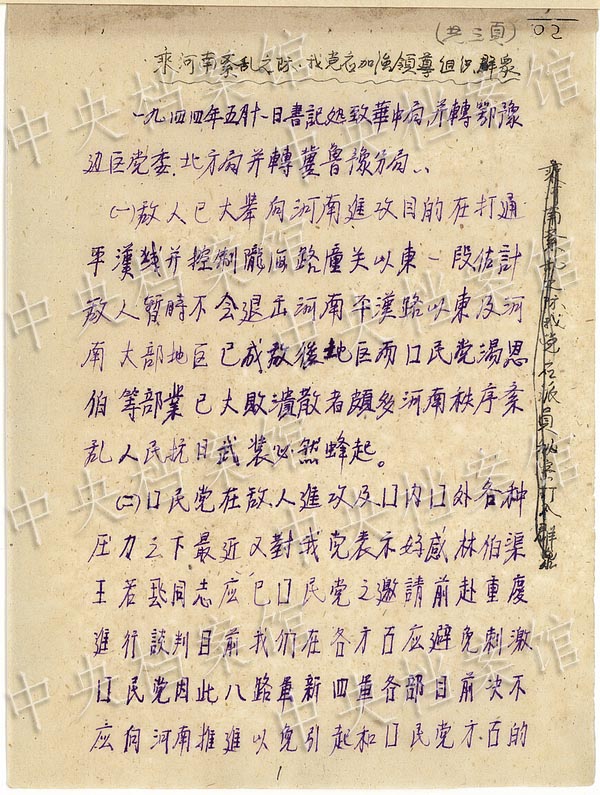 (共三頁)
02
乘河南紊乱之际，我党应加强領導组织群衆
一九四四年五月十一日書記処致華中局并轉鄂豫
边区党委.北方局并轉冀魯豫分局、、
㈠敌人已大舉向河南進攻目的在打通
平漢线并控制隴海路潼关以東一段估計
敌人暫時不会退出河南平漢路以東及河
南大部地区已成敌後地区而囗民党湯恩
伯等部業已大敗潰散者頗多河南秩序紊
乱人民抗日武装必然蜂起。
㈡囗民党在敌人進攻及囗内囗外各种
压力之下最近又對我党表示好感林伯渠
王若飛同志应已囗民党之邀請前赴重慶
進行談判目前我们在各方百应避免刺激
囗民党因此八路軍新四軍各部目前决不
应向河南推進以免引起和囗民党方百的
1
南紊乱之际我党应派員秘密打入群衆
中央档案馆